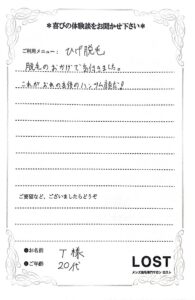 ＊喜びの体験談をお聞かせ下さい＊
ご利用メニュー： ひげ脱毛
脱毛のおかげで気付きました。
これがおれの本物のハンサム顔だ！
ご要望など、ございましたらどうぞ
●お名前 T 様
●ご年齢 20代
LOST
メンズ脱毛専門サロン ロスト